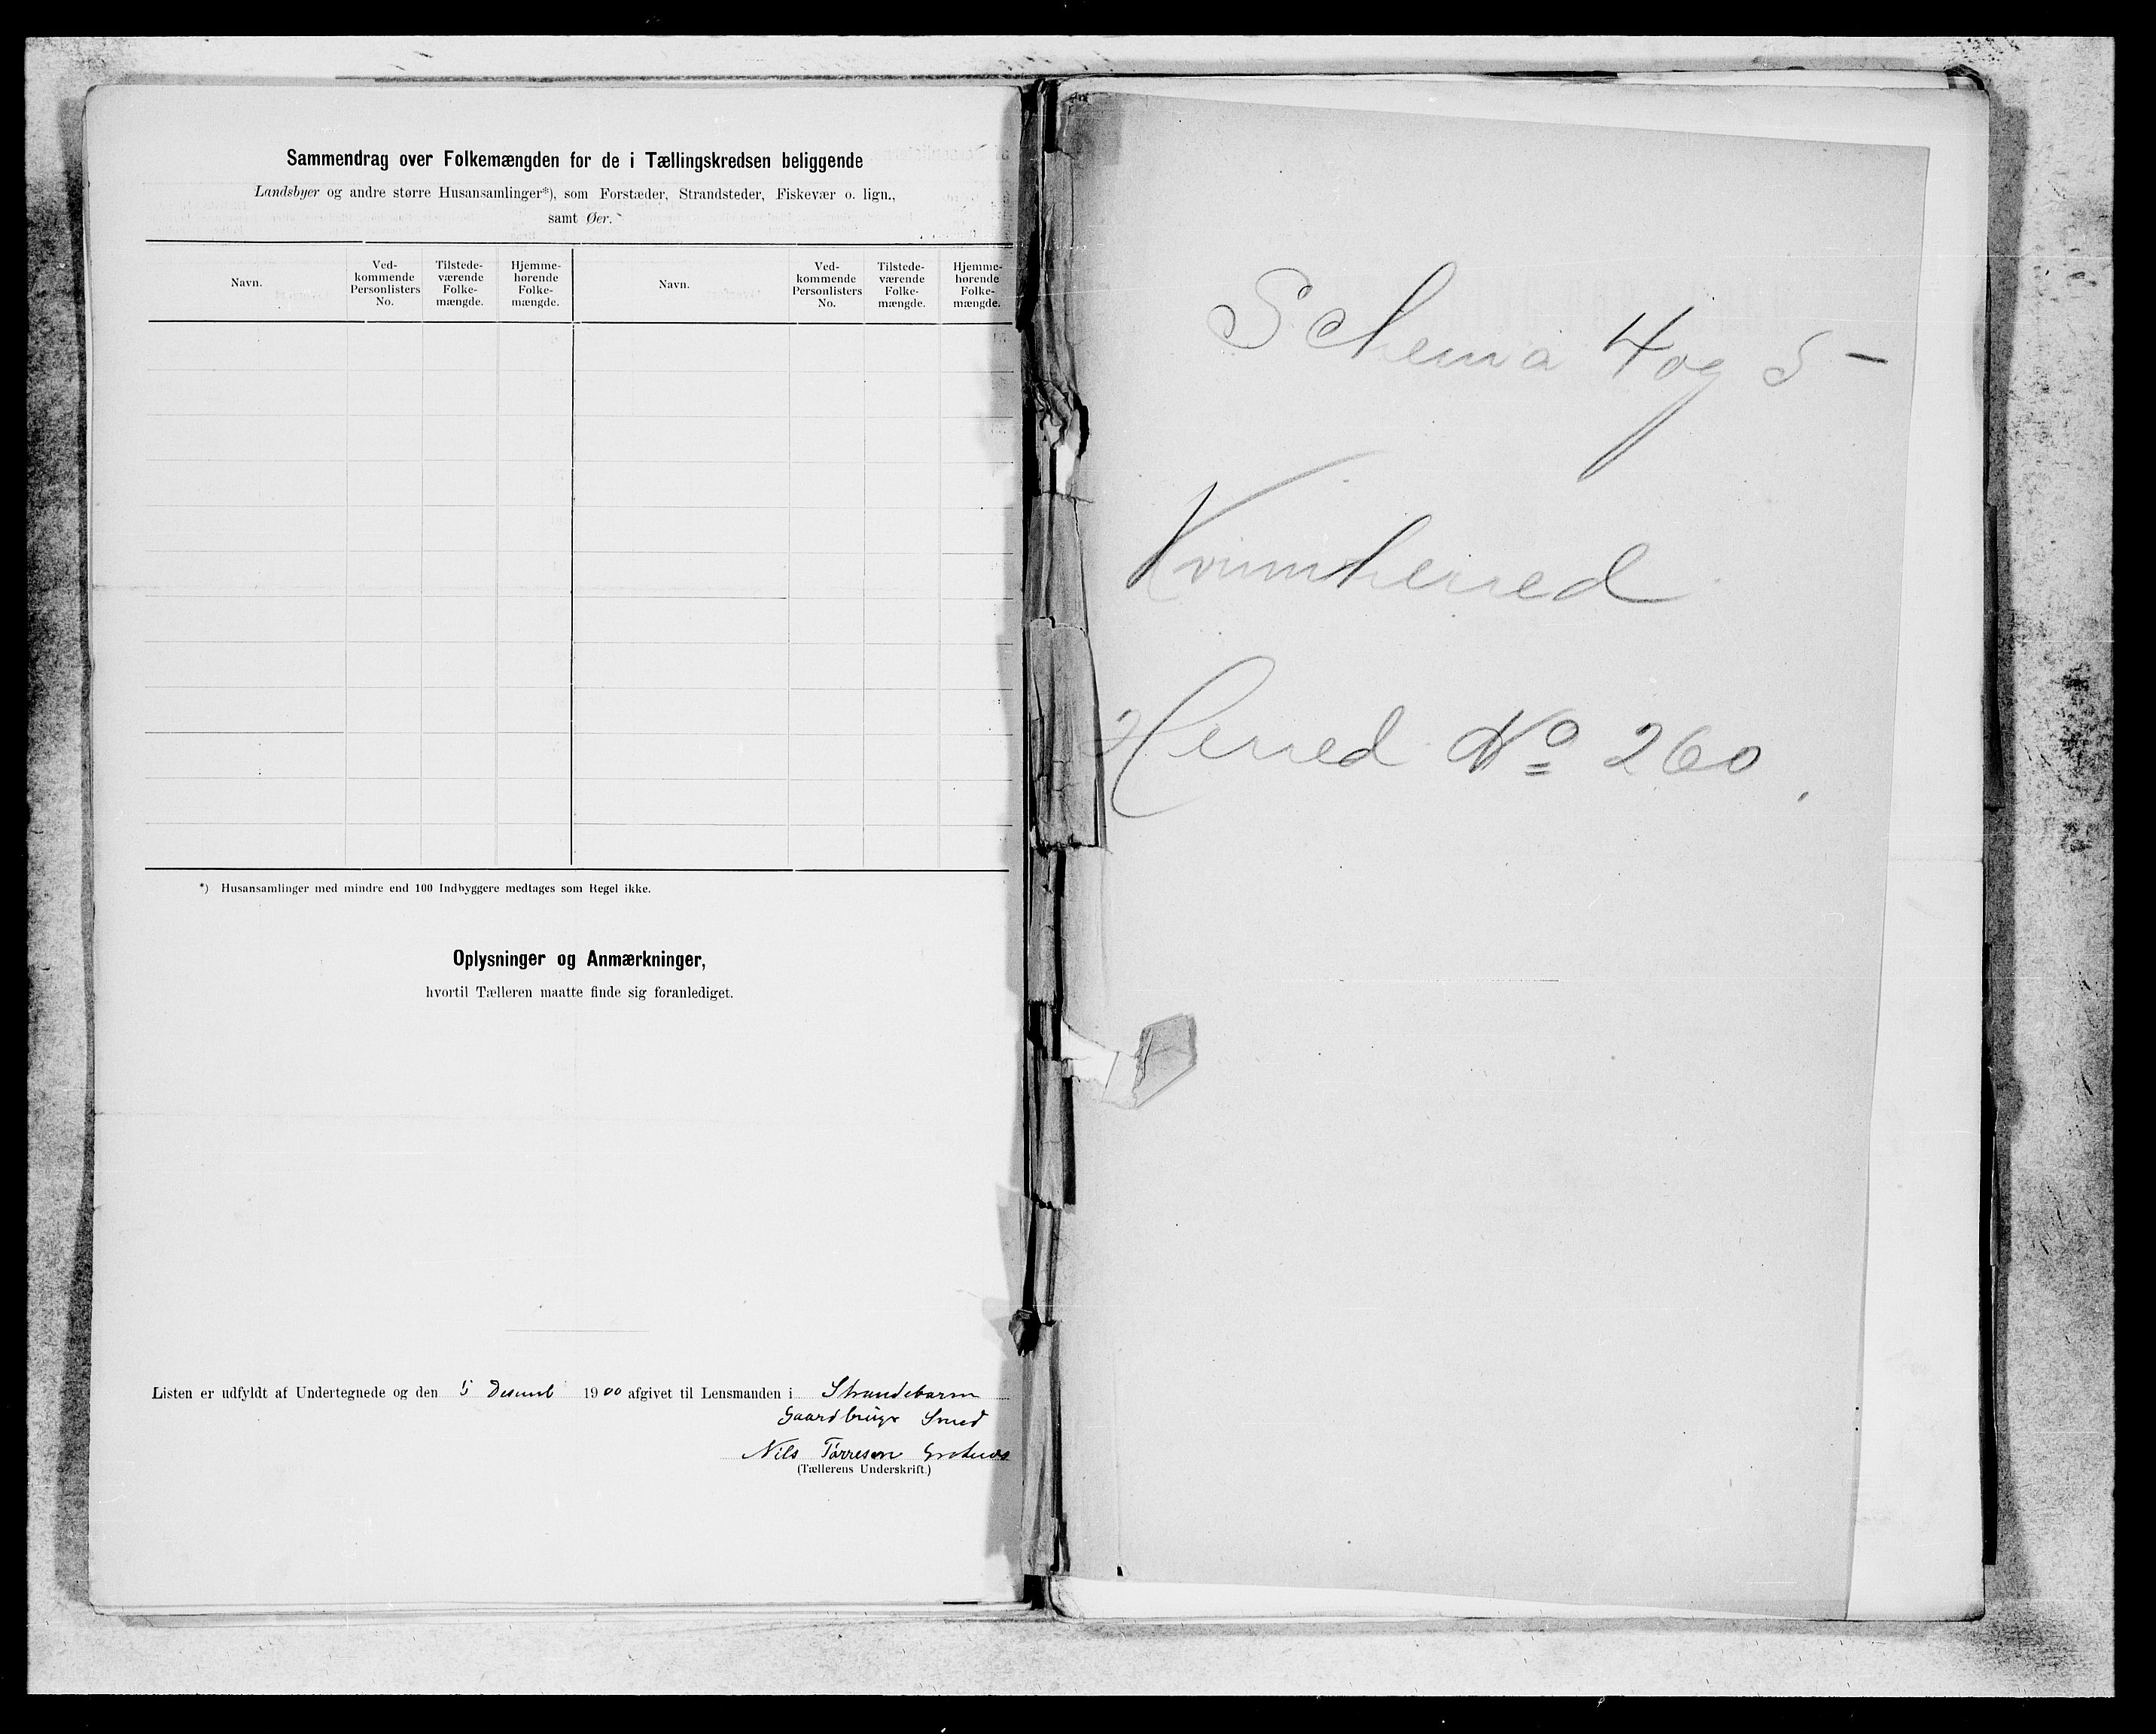 Sammendrag over Folkemængden for de i Tællingskredsen beliggende
Landsbyer og andre større Husansamlinger*), som Forstæder, Strandsteder, Fiskevær o. lign.,
samt Øer.
Navn. Ved-kommende Personlisters No. Tilstede-værende Folke-mængde. Hjemme-hørende Folke-mængde. Navn. Ved-kommende Personlisters No. Tilstede-værende Folke-mængde. Hjemme-hørende Folke-mængde.
*) Husansamlinger med mindre end 100 Indbyggere medtages som Regel ikke.
Oplysninger og Anmærkninger,
hvortil Tælleren maatte finde sig foranlediget.
Listen er udfyldt af Undertegnede og den 5 1900 afgivet til Lensmanden i Strandebarm
Smed
Nils Tørresen
(Tællerens Underskrift.)
Schema 4 og 5
Kvinnherred
Herred No 260